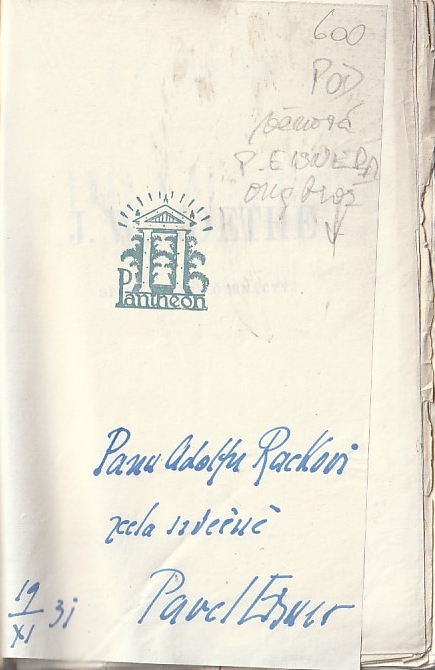 600
POD
P. EISNERA
orig brož
Pantheon
J. W. GOETHE
Panu Adolfu Rackovi
zcela srdečně
19/XI 31
Pavel Eisner